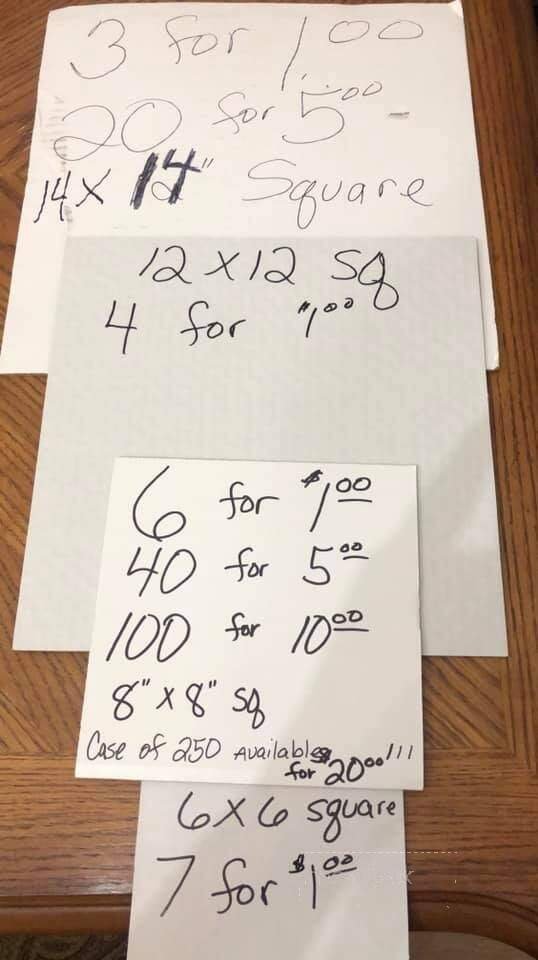 3 for 1.00
20 for 5.00 -
14 X 14" Square
12 X 12 SQ
4 for $1.00
6 for $1 00
40 for 5 00
100 for 10 00
8" x 8" SQ
Case of 250 Available
for 20 00 !!!
6X6 square
7 for $1 00